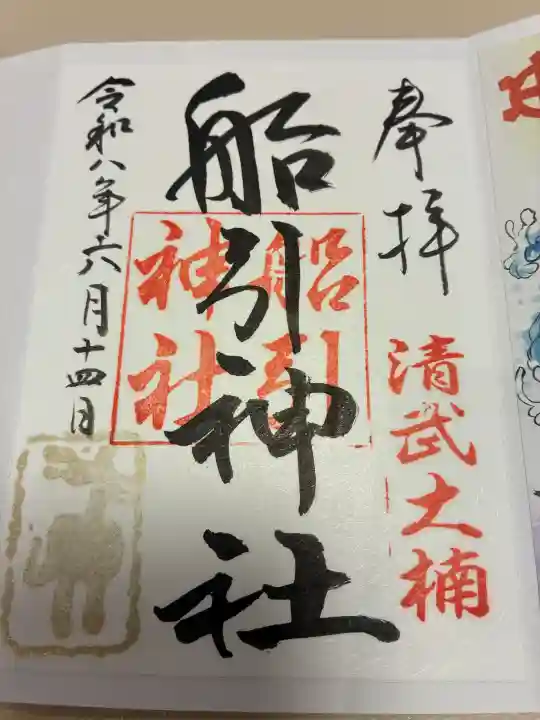 奉拝
清武大楠
船引神社
船引
神社
令和八年六月十四日